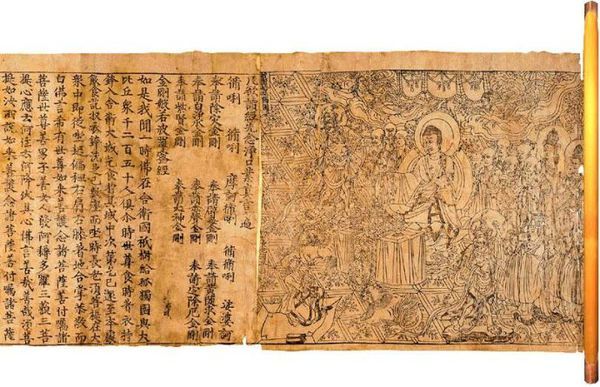 凡欲讀經先念淨口業真言一遍
脩唎 脩唎 摩訶脩唎 脩脩唎 娑婆訶
奉請除灾金剛 奉請辟毒金剛 奉請黃隨求金剛
奉請白淨水金剛 奉請赤聲金剛 奉請定除厄金剛
奉請紫賢金剛 奉請大神金剛
金剛般若波羅蜜經
如是我聞一時佛在舍衛國祇樹給孤獨園與大
比丘衆千二百五十人俱尒時世尊食時著衣持
鉢入舍衛大城乞食於其城中次第乞已還至本處
飯食訖收衣鉢洗足已敷座而坐時長老須菩提在大
衆中即從座起偏袒右肩右膝著地合掌恭敬而
白佛言希有世尊如來善護念諸菩薩善付囑諸
菩薩世尊善男子善女人發阿耨多羅三藐三菩
提心應云何住云何降伏其心佛言善哉善哉須菩
提如汝所說如來善護念諸菩薩善付囑諸菩薩